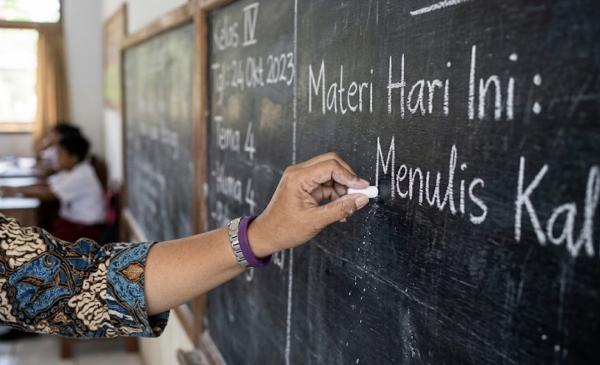 Kelas IV
Tgl: 24 Okt 2023
Tema 4
Materi Hari Ini:
Menulis Kal